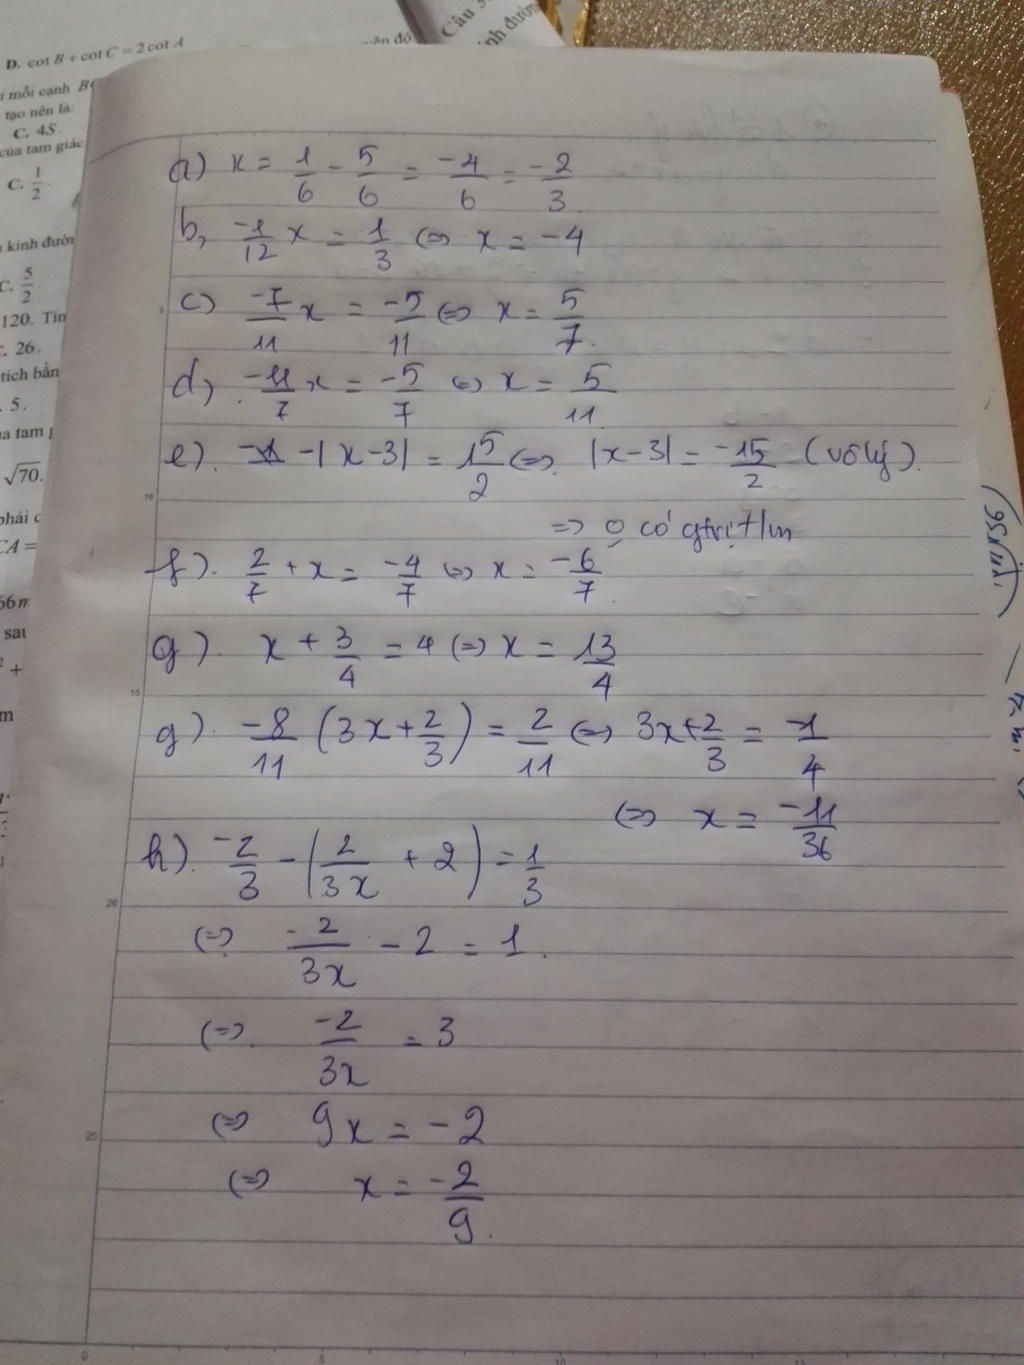 D. cot B + cot C = 2 cot A
Câu 3
i mỗi cạnh B
tạo nên là:
C. 4S.
của tam giác
C. 1/2.
kính đườn
C. 5/2.
120. Tín
C. 26.
tích bằn
5.
√70.
phải c
CA =
56m
sau
a) x = 1/6 - 5/6 = -4/6 = -2/3
b, -1/12 x = 1/3 (=) x = -4
c) -7/11 x = -5/11 (=) x = 5/7.
d, -11/7 x = -5/7 (=) x = 5/11
e). -|x-3| = 15/2 (=) |x-3| = -15/2 (vô lý).
=> 0 có gtrị t/m
f). 2/7 + x = -4/7 (=) x = -6/7
g). x + 3/4 = 4 (=) x = 13/4
g). -8/11 (3x + 2/3) = 2/11 (=) 3x + 2/3 = -1/4
(=) x = -11/36
h). -2/3 - (2/3x + 2) = 1/3
(=) -2/3x - 2 = 1.
(=). -2/3x = 3
(=) 9x = -2
(=) x = -2/9.